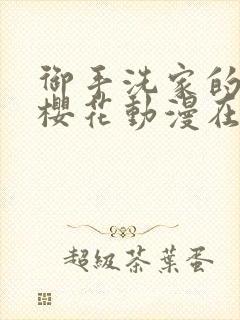 御手洗家的
櫻花動漫在
超級茶葉蛋